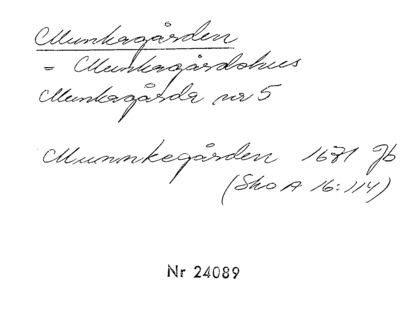 Munkagården
= Munkagårdshus
Munkagårda nr 5
Munnkegården 1671 Jb
(Sko A 16:114)
Nr 24089